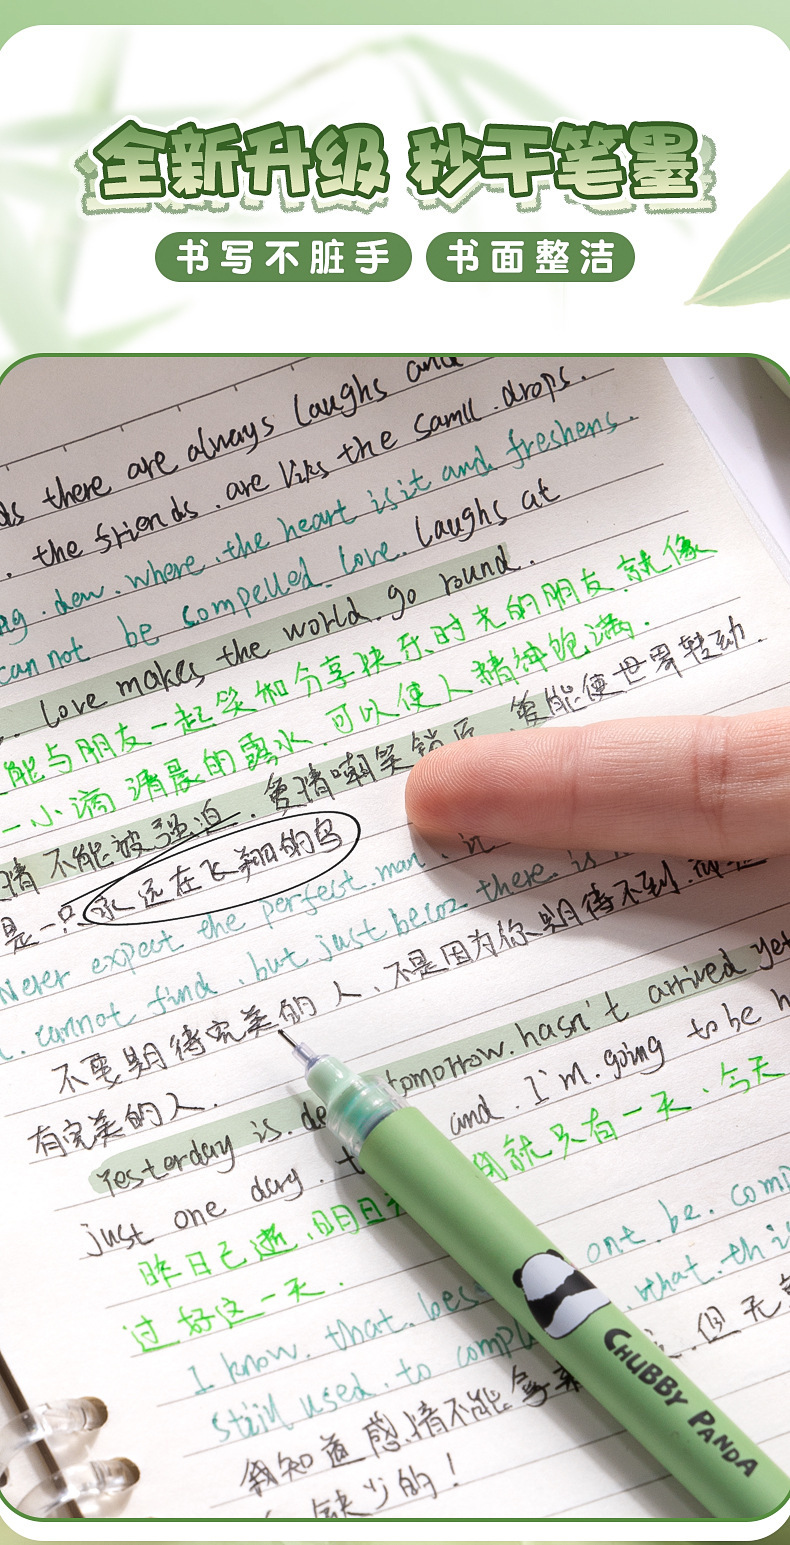 全新升级 秒干笔墨
书写不脏手 书面整洁
there are always laughs and
. the friends . are liks the samll . drops .
dew . where . the heart is it and freshens .
can not be compelled . love . laughs at
. love makes the world . go round .
能与朋友一起笑和分享快乐时光的朋友 . 就像
一小滴清晨的露水 . 可以使人精神饱满 .
情不能被强迫 . 爱情嘲笑 . 爱能使世界转动 .
是一只永远在飞翔的鸟
Never expect the perfect . man . there . is
. cannot find . but just becoz
不要期待完美的人 . 不是因为你期待不到 .
有完美的人 .
Yesterday is . tomorrow . hasn't arrived yet
just one day . and . I'm . going to be
昨日已逝 . 明日 就只有一天 . 今天
过好这一天 .
I know . that . ont . be .
still used . to . what . thi
我知道感情不能 , 但无
缺少的！
CHUBBY PANDA